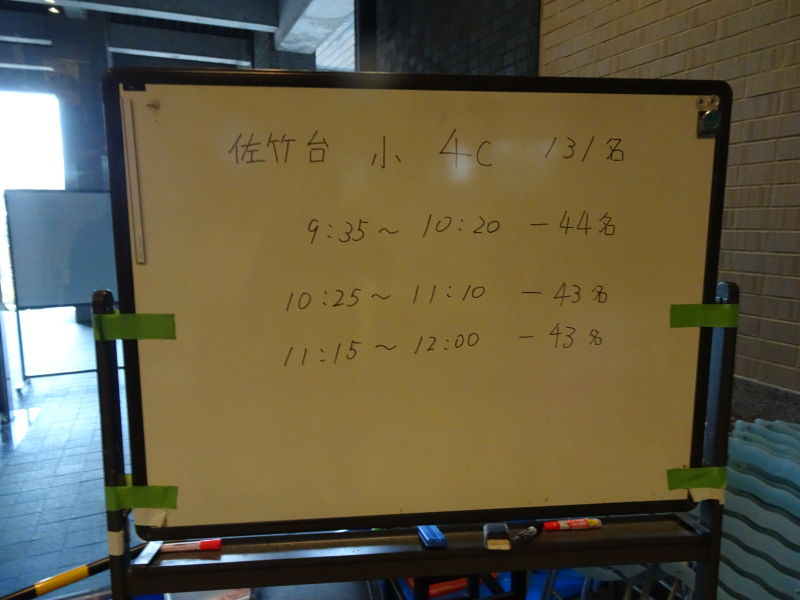 佐竹台 小 4C 131名
9:35～10:20 －44名
10:25～11:10 －43名
11:15～12:00 －43名